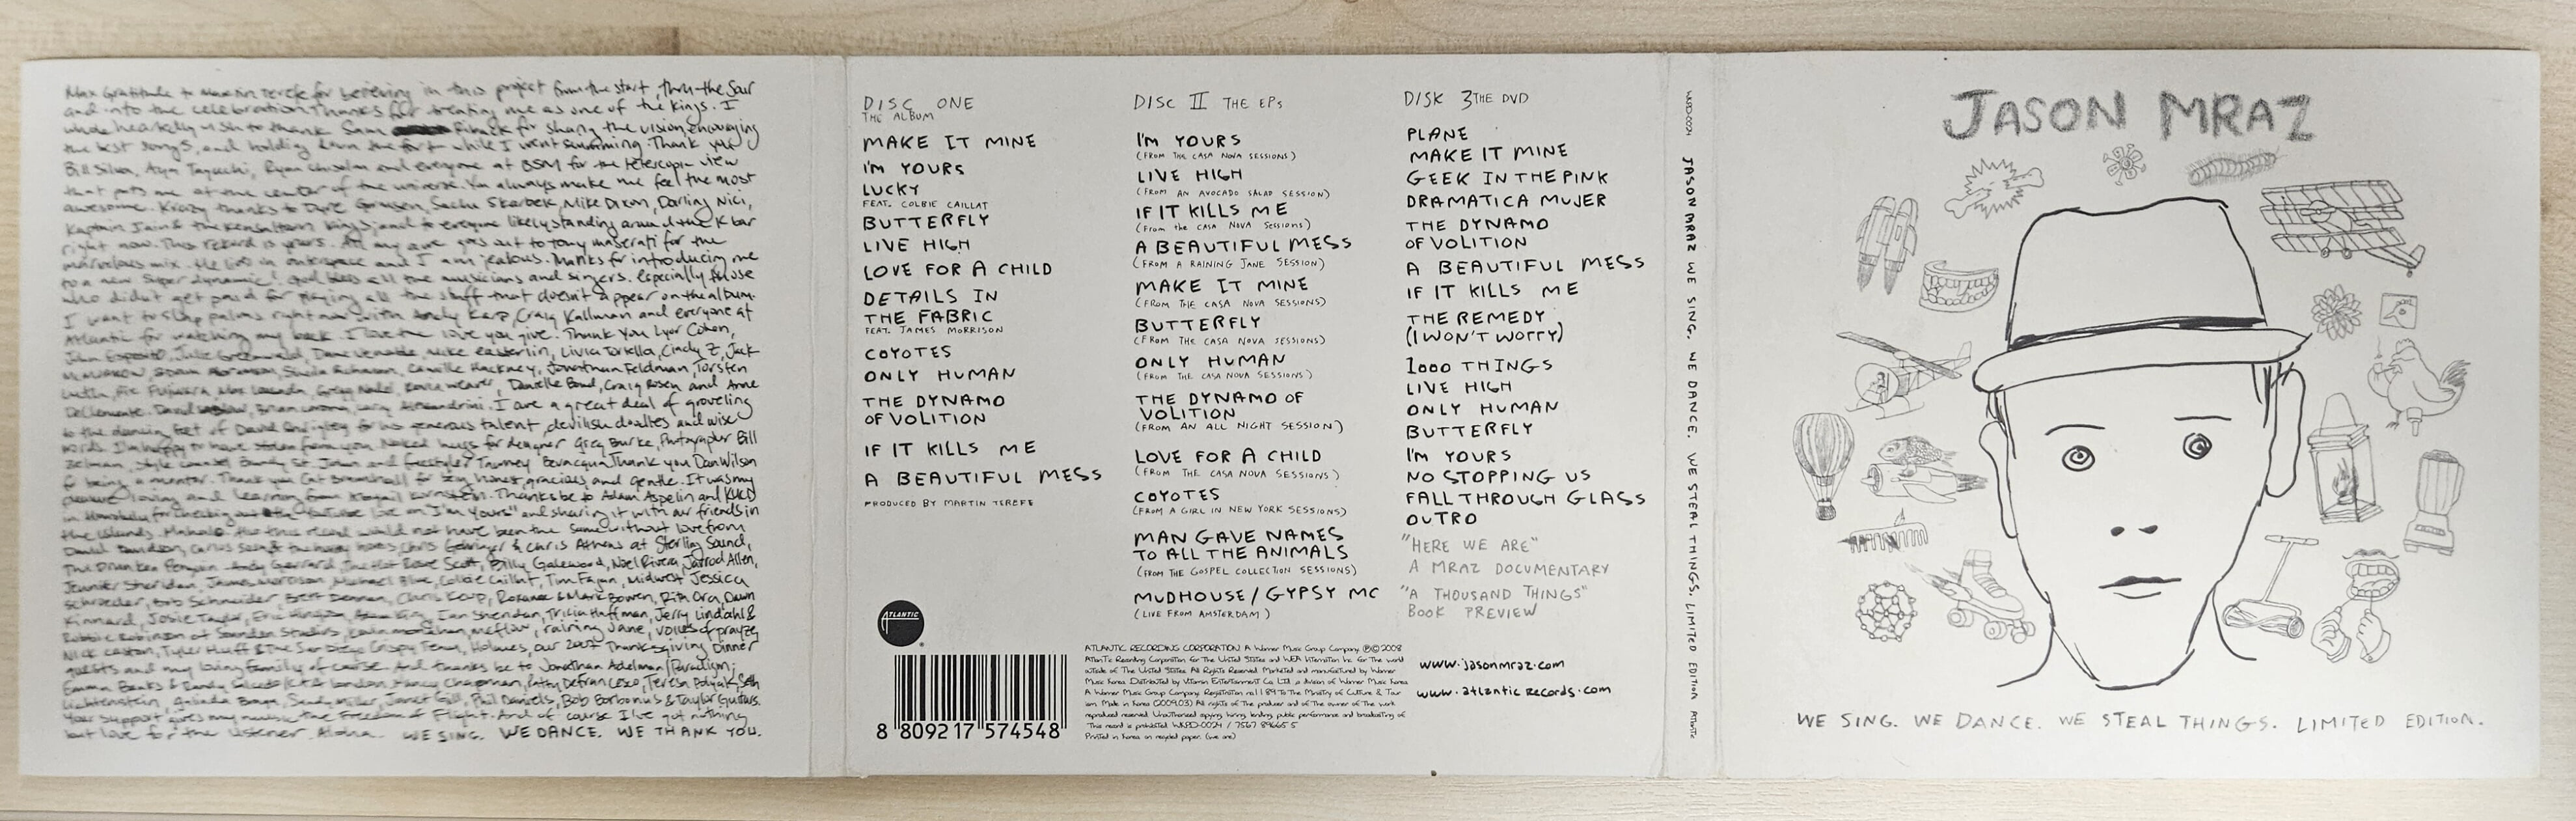 Max Gratitude to Martin Terefe for believing in this project from the start, thru the Sour
and into the celebration. Thanks for treating me as one of the kings. I
wholeheartedly wish to thank Sam for sharing the vision, encouraging
the best songs, and holding down the fort while I went swimming. Thank you
Bill Silva, and everyone at BSM for the telescopic view
that puts me at the center of the universe. You always make me feel the most
awesome. Krazy thanks to Sacha Skarbek, Mike Dixon, Darling Nici,
Kaptain Iain & the Kensaltown Kings, and to everyone likely standing around the K bar
right now. This record is yours. All my awe goes out to Tony Maserati for the
marvelous mix. He lives in outerspace and I am jealous. Thanks for introducing me
to a new Super dynamic! God bless all the musicians and singers. Especially those
who didn't get paid for playing all the stuff that doesn't appear on the album.
I want to slap palms right now with Andy Karp, Craig Kallman and everyone at
Atlantic for watching my back. I love the love you give. Thank You Lyor Cohen,
John Esposito, Julie Greenwald, Mike Easterlin, Livia Tortella, Cindy Z, Jack
Camille Hackney, Jonathan Feldman, Torsten
Danielle Craig Rosen and Anne
I owe a great deal of groveling
to the dancing feet of David Shrigley for his generous talent, devilish doodles and wise
words. I'm happy to have stolen from you. Naked hugs for designer Greg Burke, Photographer Bill
Zelman, Thank you Dan Wilson
for being a mentor. for being honest, gracious, and gentle. It was my
loving and learning from Thanks be to Adam Aspelin and
in Honolulu for checking out and sharing it with our friends in
the islands. Mahalo. this record would not have been the same without love from
Chris Gehringer & Chris Athens at Sterling Sound,
The Drunken Penguin, Billy Galewood, Noel Rivera, Jarrod Allen,
Jennifer Sheridan, James Morrison, Michael Colbie Caillat, Tim Fagan, Midwest Jessica
Schroeder, Bob Schneider, Rita Ora, Dawn
Kinnard, Josie Ian Sheridan, Tricia Huffman, Jerry Lindahl &
Raining Jane, Voices of
Tyler Huff & The San Diego Crispy Team, Holmes, our 2007 Thanksgiving Dinner
guests and my loving family of course. And thanks be to Jonathan Adelman/Paradigm;
Emma Banks & Teresa Polyak, Seth
Janet Gill, Phil Daniels, Bob Borbonus & Taylor
Your support gives my music the Freedom of Flight. And of course I've got nothing
but love for the listener. Aloha. WE SING. WE DANCE. WE THANK YOU.
DISC ONE
THE ALBUM
MAKE IT MINE
I'M YOURS
LUCKY
FEAT. COLBIE CAILLAT
BUTTERFLY
LIVE HIGH
LOVE FOR A CHILD
DETAILS IN
THE FABRIC
FEAT. JAMES MORRISON
COYOTES
ONLY HUMAN
THE DYNAMO
OF VOLITION
IF IT KILLS ME
A BEAUTIFUL MESS
PRODUCED BY MARTIN TEREFE
ATLANTIC
8 809217 574548
DISC II THE EPs
I'M YOURS
(FROM THE CASA NOVA SESSIONS)
LIVE HIGH
(FROM AN AVOCADO SALAD SESSION)
IF IT KILLS ME
(From the CASA NOVA Sessions)
A BEAUTIFUL MESS
(FROM A RAINING JANE SESSION)
MAKE IT MINE
(FROM THE CASA NOVA SESSIONS)
BUTTERFLY
(FROM THE CASA NOVA SESSIONS)
ONLY HUMAN
(FROM THE CASA NOVA SESSIONS)
THE DYNAMO OF
VOLITION
(FROM AN ALL NIGHT SESSION)
LOVE FOR A CHILD
(FROM THE CASA NOVA SESSIONS)
COYOTES
(FROM A GIRL IN NEW YORK SESSIONS)
MAN GAVE NAMES
TO ALL THE ANIMALS
(FROM THE GOSPEL COLLECTION SESSIONS)
MUDHOUSE/GYPSY MC
(LIVE FROM AMSTERDAM)
DISK 3 THE DVD
PLANE
MAKE IT MINE
GEEK IN THE PINK
DRAMATICA MUJER
THE DYNAMO
OF VOLITION
A BEAUTIFUL MESS
IF IT KILLS ME
THE REMEDY
(I WON'T WORRY)
1000 THINGS
LIVE HIGH
ONLY HUMAN
BUTTERFLY
I'M YOURS
NO STOPPING US
FALL THROUGH GLASS
OUTRO
"HERE WE ARE"
A MRAZ DOCUMENTARY
"A THOUSAND THINGS"
BOOK PREVIEW
ATLANTIC RECORDING CORPORATION A Warner Music Group Company. ℗© 2008
Atlantic Recording Corporation for The United States and WEA International Inc. for The world
outside of The United States. All Rights Reserved. Marketed and manufactured by Warner
Music Korea. Distributed by Vitamin Entertainment Co. LTD., a division of Warner Music Korea
A Warner Music Group Company. Registration no.1189 to The Ministry of Culture & Tour
ism. Made in Korea (2009.03) All rights of The producer and of The owner of The work
reproduced reserved. Unauthorized copying, hiring, lending, public performance and broadcasting of
This record is prohibited. WKPD-0024 / 7567 89665 5
Printed in Korea on recycled paper. (we are)
www.jasonmraz.com
www.atlanticrecords.com
WKPD-0024 JASON MRAZ WE SING. WE DANCE. WE STEAL THINGS. LIMITED EDITION Atlantic
JASON MRAZ
WE SING. WE DANCE. WE STEAL THINGS. LIMITED EDITION.